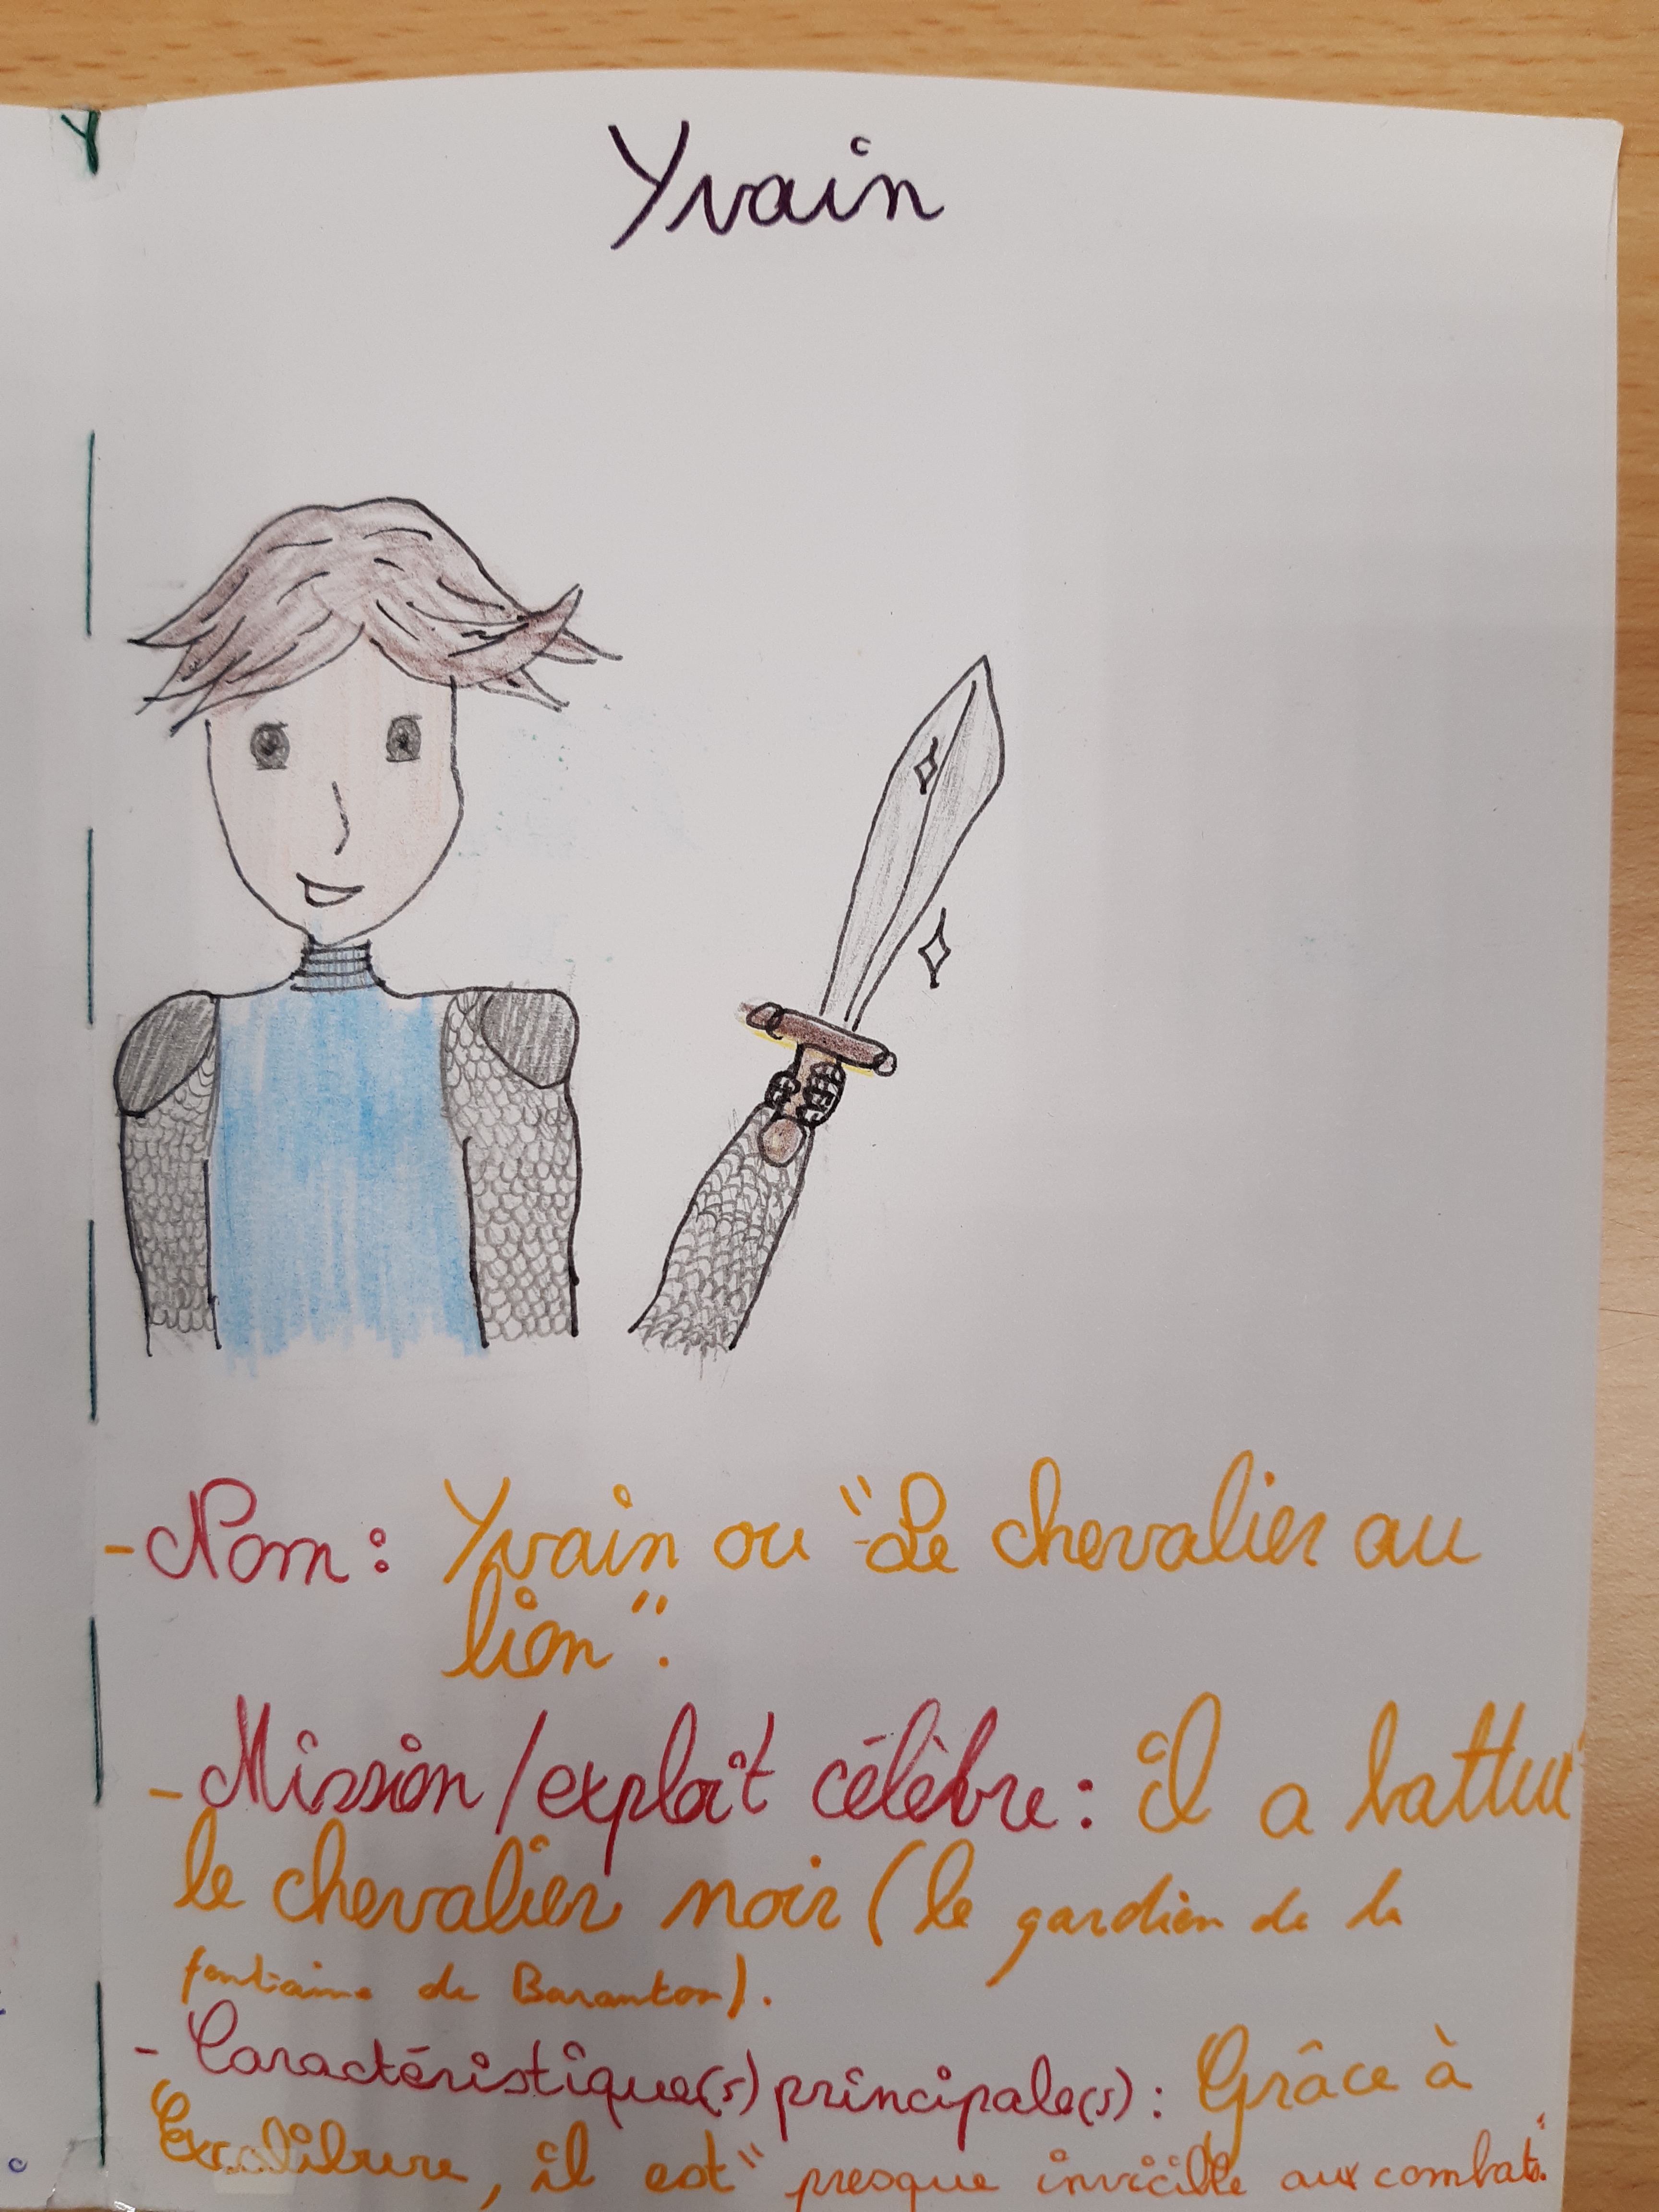 Yvain
- Nom : Yvain ou "Le chevalier au
lion".
- Mission/exploit célèbre : il a battu
le chevalier noir (le gardien de la
fontaine de Baranton).
- Caractéristique(s) principale(s) : Grâce à
Excalibure, il est "presque invicible aux combats."